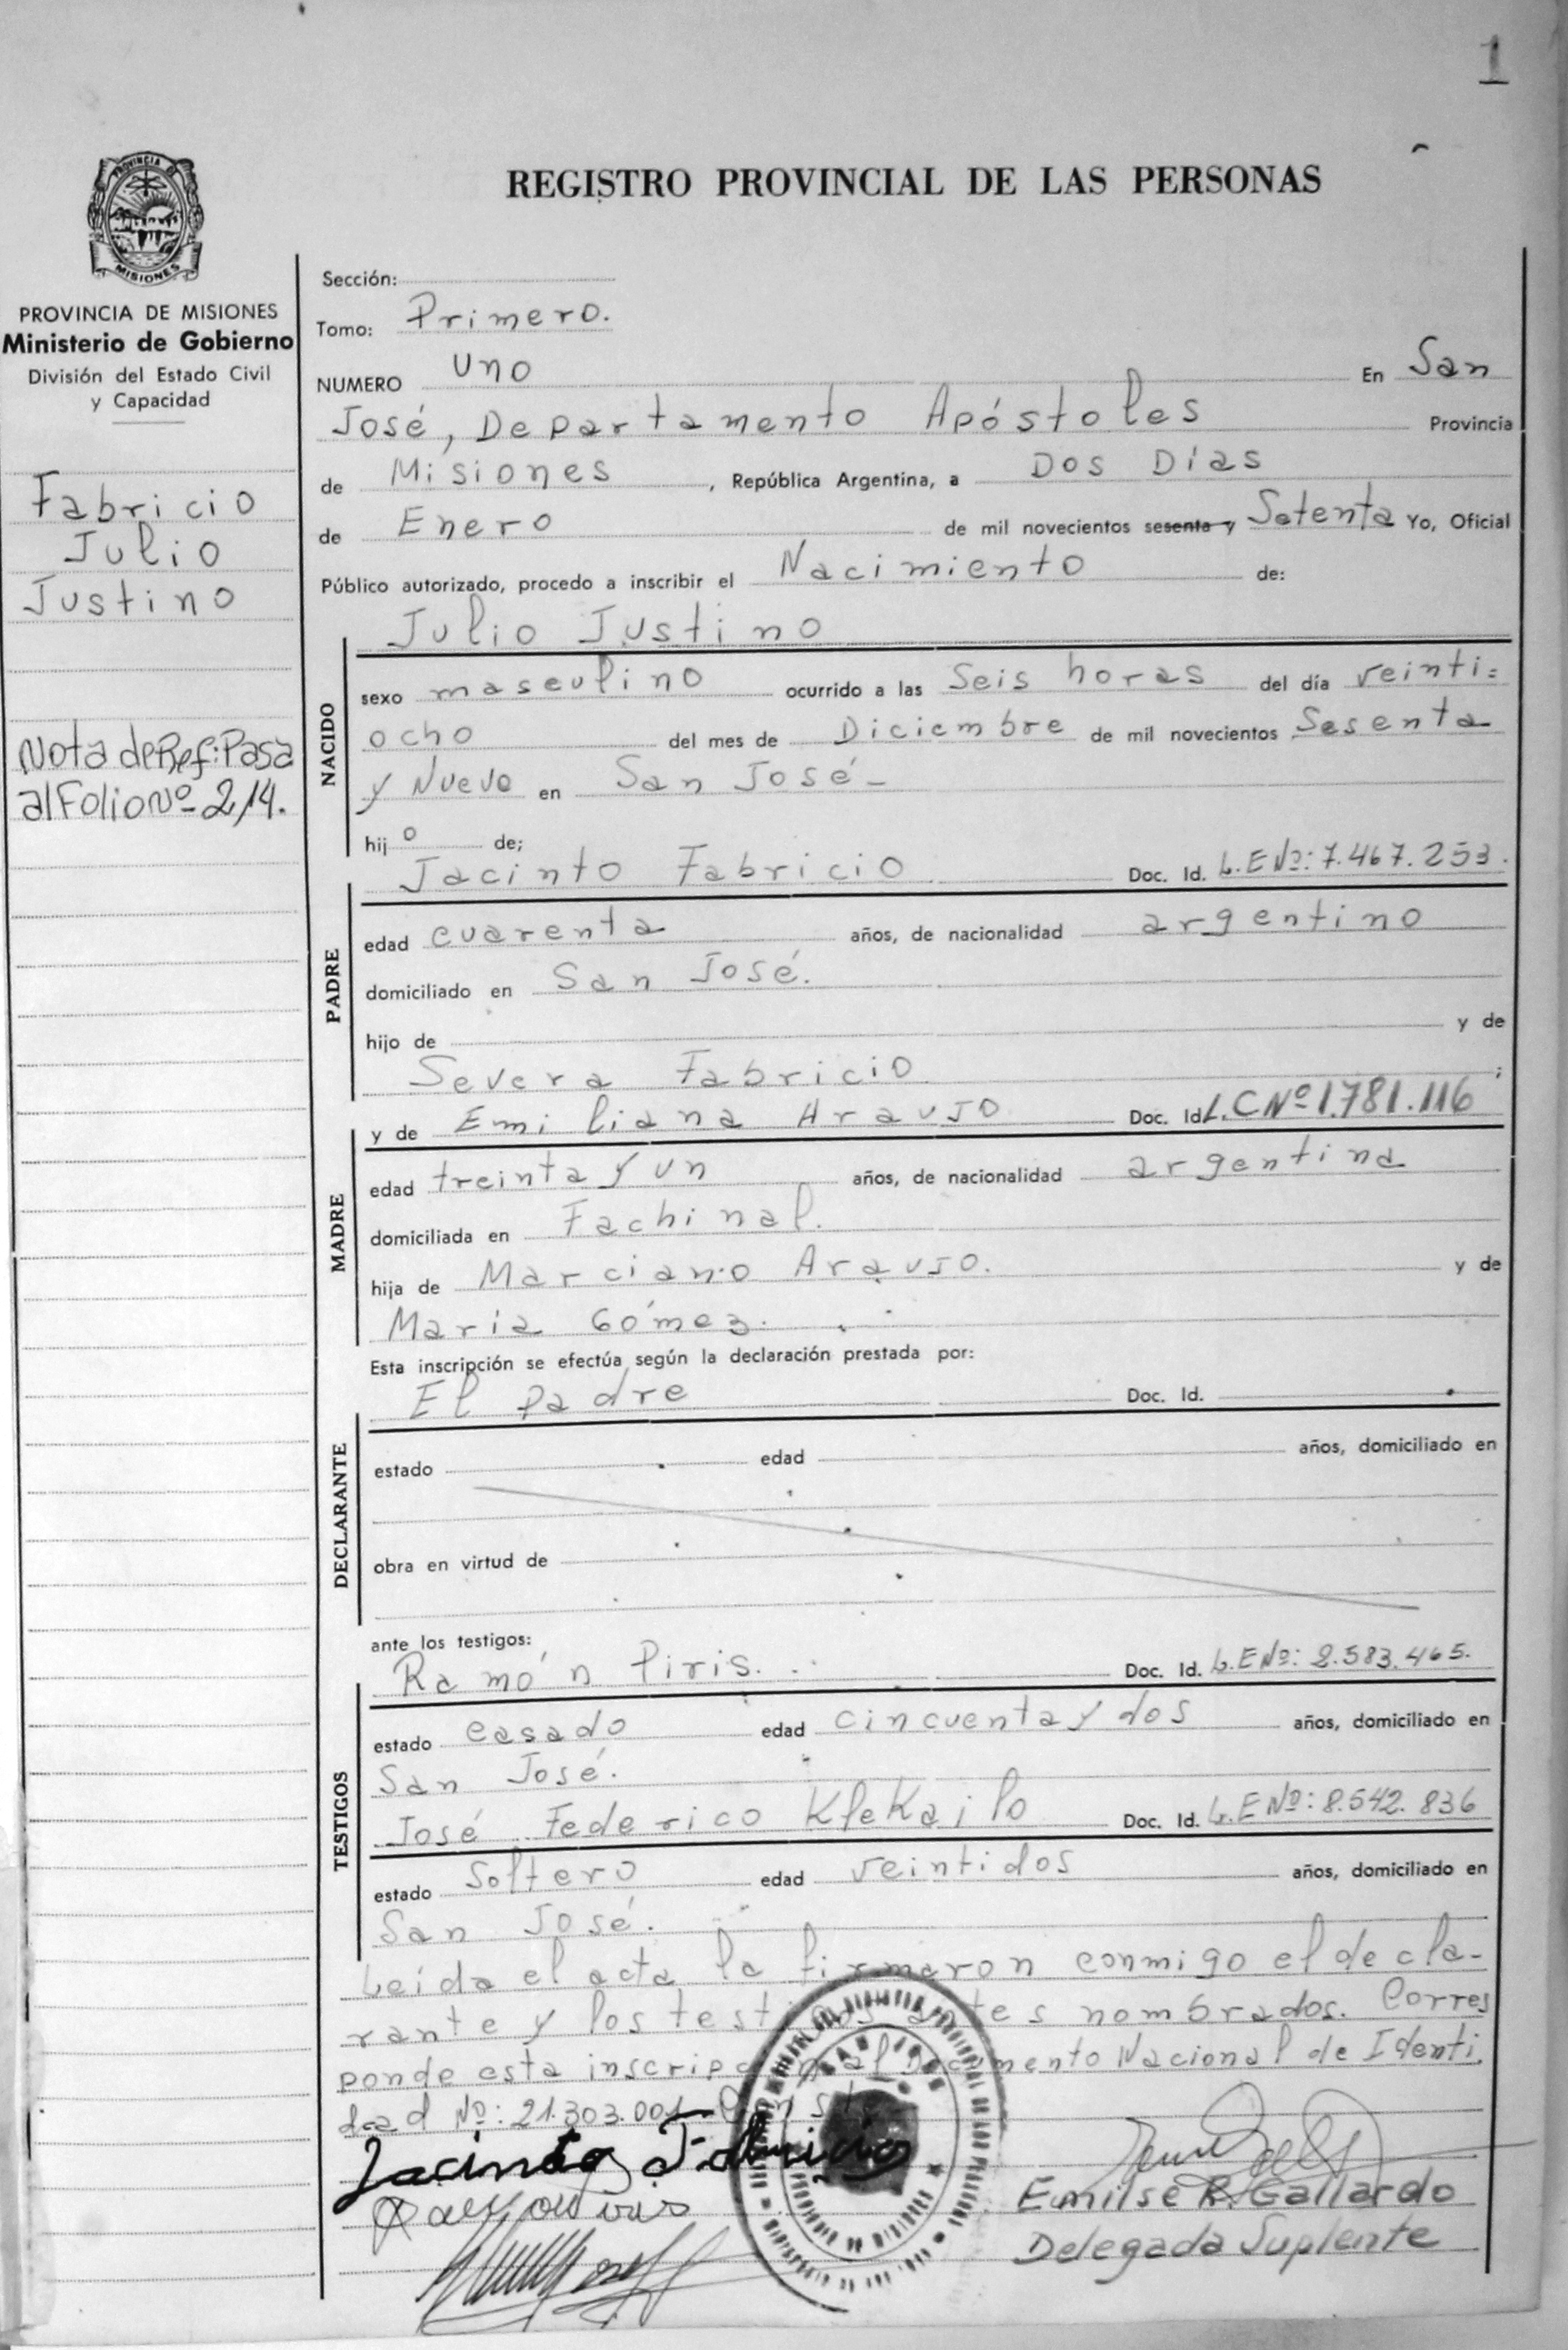 1
PROVINCIA DE
MISIONES
REGISTRO PROVINCIAL DE LAS PERSONAS
PROVINCIA DE MISIONES
Ministerio de Gobierno
División del Estado Civil
y Capacidad
Fabricio
Julio
Justino
Nota de Ref: Pasa
al Folio Nº 214.
Sección:
Tomo: Primero.
NUMERO Uno En San
José, Departamento Apóstoles Provincia
de Misiones, República Argentina, a Dos Días
de Enero de mil novecientos sesenta y Setenta Yo, Oficial
Público autorizado, procedo a inscribir el Nacimiento de:
Julio Justino
NACIDO
sexo masculino ocurrido a las Seis horas del día veinti=
ocho del mes de Diciembre de mil novecientos Sesenta
y Nueve en San José-
hijo de;
Jacinto Fabricio Doc. Id. L.E Nº: 7.467.253.
PADRE
edad cuarenta años, de nacionalidad argentino
domiciliado en San José.
hijo de y de
Severa Fabricio ;
y de Emiliana Araujo Doc. Id. L.C Nº 1.781.116
MADRE
edad treinta y un años, de nacionalidad argentina
domiciliada en Fachinal.
hija de Marciano Araujo. y de
María Gómez.
Esta inscripción se efectúa según la declaración prestada por:
El padre Doc. Id.
DECLARANTE
estado edad años, domiciliado en
obra en virtud de
ante los testigos:
Ramón Piris. Doc. Id. L.E Nº: 2.583.465.
TESTIGOS
estado casado edad cincuenta y dos años, domiciliado en
San José.
José Federico Klekailo Doc. Id. L.E Nº: 8.542.836
estado Soltero edad veintidos años, domiciliado en
San José.
Leída el acta la firmaron conmigo el decla-
rante y los testigos antes nombrados. Corres
ponde esta inscripción al Documento Nacional de Identi
dad Nº: 21.303.001
Jacinto Fabricio
Emilse R. Gallardo
Delegada Suplente